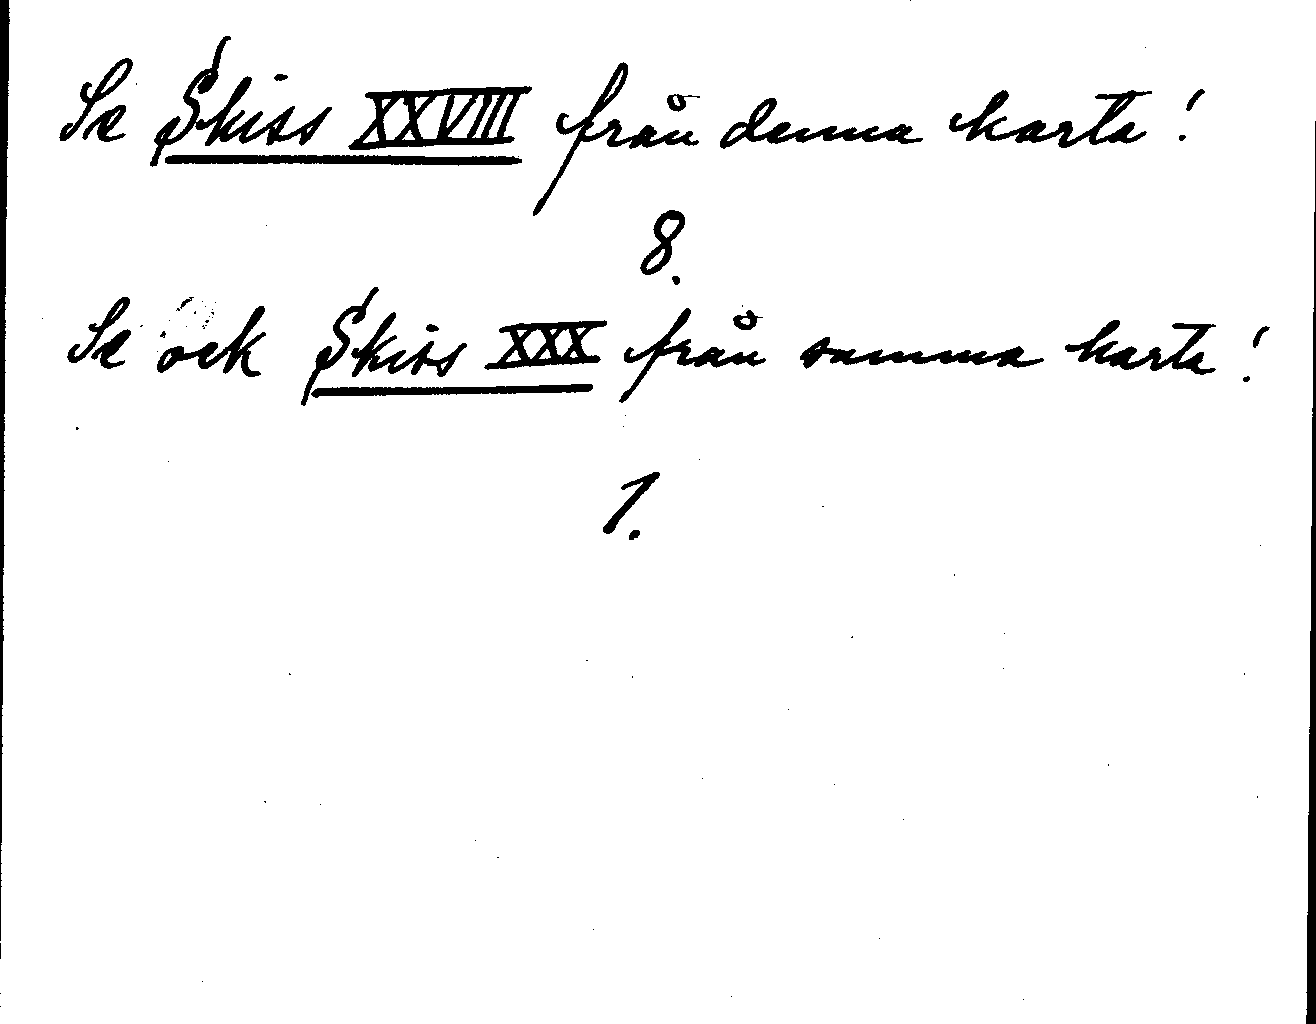 Se Skiss XXVIII från denna karta!
8.
Se ock Skiss XXX från samma karta!
1.